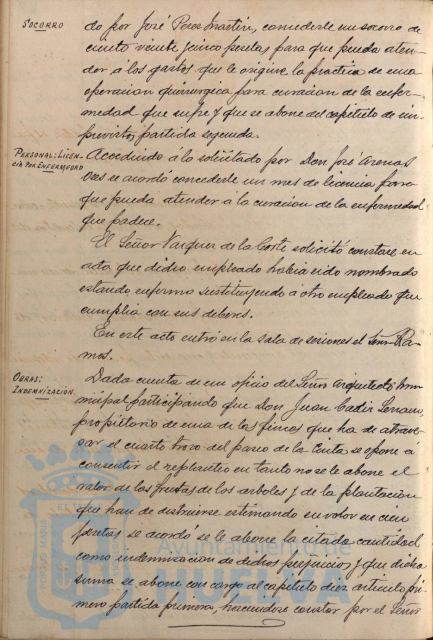 SOCORRO
do por José Peres Martin, concederle un socorro de
ciento veinte y cinco pesetas para que pueda aten-
der, a los gastos que le origine la practica de una
operacion quirurgica para curacion de la enfer-
medad que sufre y que se abone del capitulo de im-
previstos, partida segunda.
PERSONAL: LICEN-
CIA POR ENFERMEDAD
Accediendo a lo solicitado por Don José Arenas
se acordó concederle un mes de licencia para
que pueda atender a la curacion de la enfermedad
que padece.
El Señor Vazquez de la Corte solicitó constase en
acta que dicho empleado habia sido nombrado
estando enfermo sustituyendo a otro empleado que
cumplia con sus deberes.
En este acto entró en la sala de sesiones el Señor Ra-
mos.
OBRAS:
INDEMNIZACIÓN
Dada cuenta de un oficio del Señor Arquitecto mu-
nicipal participando que Don Juan Cadiz Serrano,
propietario de una de las fincas que ha de atrave-
sar el cuarto trozo del paseo de la Cinta se opone a
consentir el replanteo en tanto no se le abone el
valor de los frutos de los arboles y de la plantación
que han de destruirse estimando su valor en cien
pesetas se acordó se le abone la citada cantidad
como indemnizacion de dichos perjuicios y que dicha
suma se abone con cargo al capitulo diez articulo pri-
mero partida primera, haciendose constar por el Señor
Ayuntamiento de
HUELVA